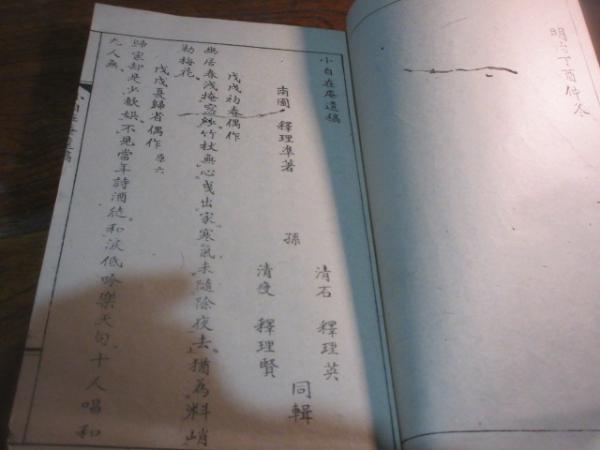 明治丁酉仲冬
小自在庵遺稿
清石　釋理英
南園　釋理準著　孫　同輯
清痩　釋理賢
戊戌初春偶作
幽居春淺掩窓紗竹杖無心曳出家寒氣未隨除夜去猶為料峭
勒梅花
戊戌夏歸省偶作　原六
歸家却是少歡娯不見當年詩酒徒和淚低吟樂天句十人唱和
九人無